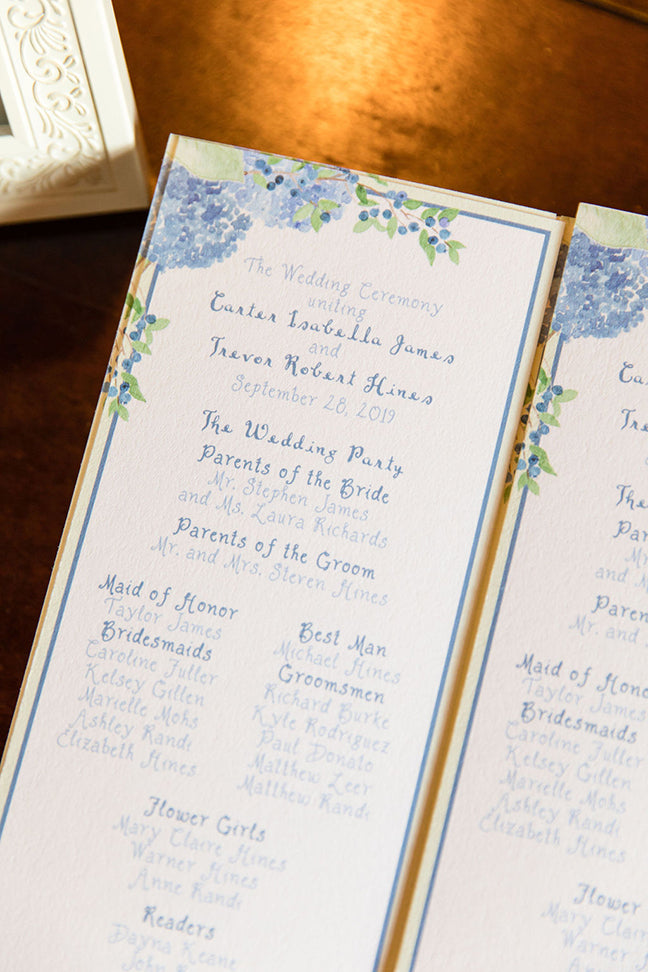 The Wedding Ceremony
uniting
Carter Isabella James
and
Trevor Robert Hines
September 28, 2019
The Wedding Party
Parents of the Bride
Mr. Stephen James
and Ms. Laura Richards
Parents of the Groom
Mr. and Mrs. Steven Hines
Maid of Honor
Taylor James
Bridesmaids
Caroline Fuller
Kelsey Gillen
Marielle Mohs
Ashley Randi
Elizabeth Hines
Best Man
Michael Hines
Groomsmen
Richard Burke
Kyle Rodriguez
Paul Donato
Matthew Leer
Matthew Randi
Flower Girls
Mary Claire Hines
Warner Hines
Anne Randi
Readers
Dayna Keane
John
and
Mr. and
Maid of Honor
Taylor James
Bridesmaids
Caroline Fuller
Kelsey Gillen
Marielle Mohs
Ashley Randi
Elizabeth Hines
Flower
Mary Claire
Warner
Anne